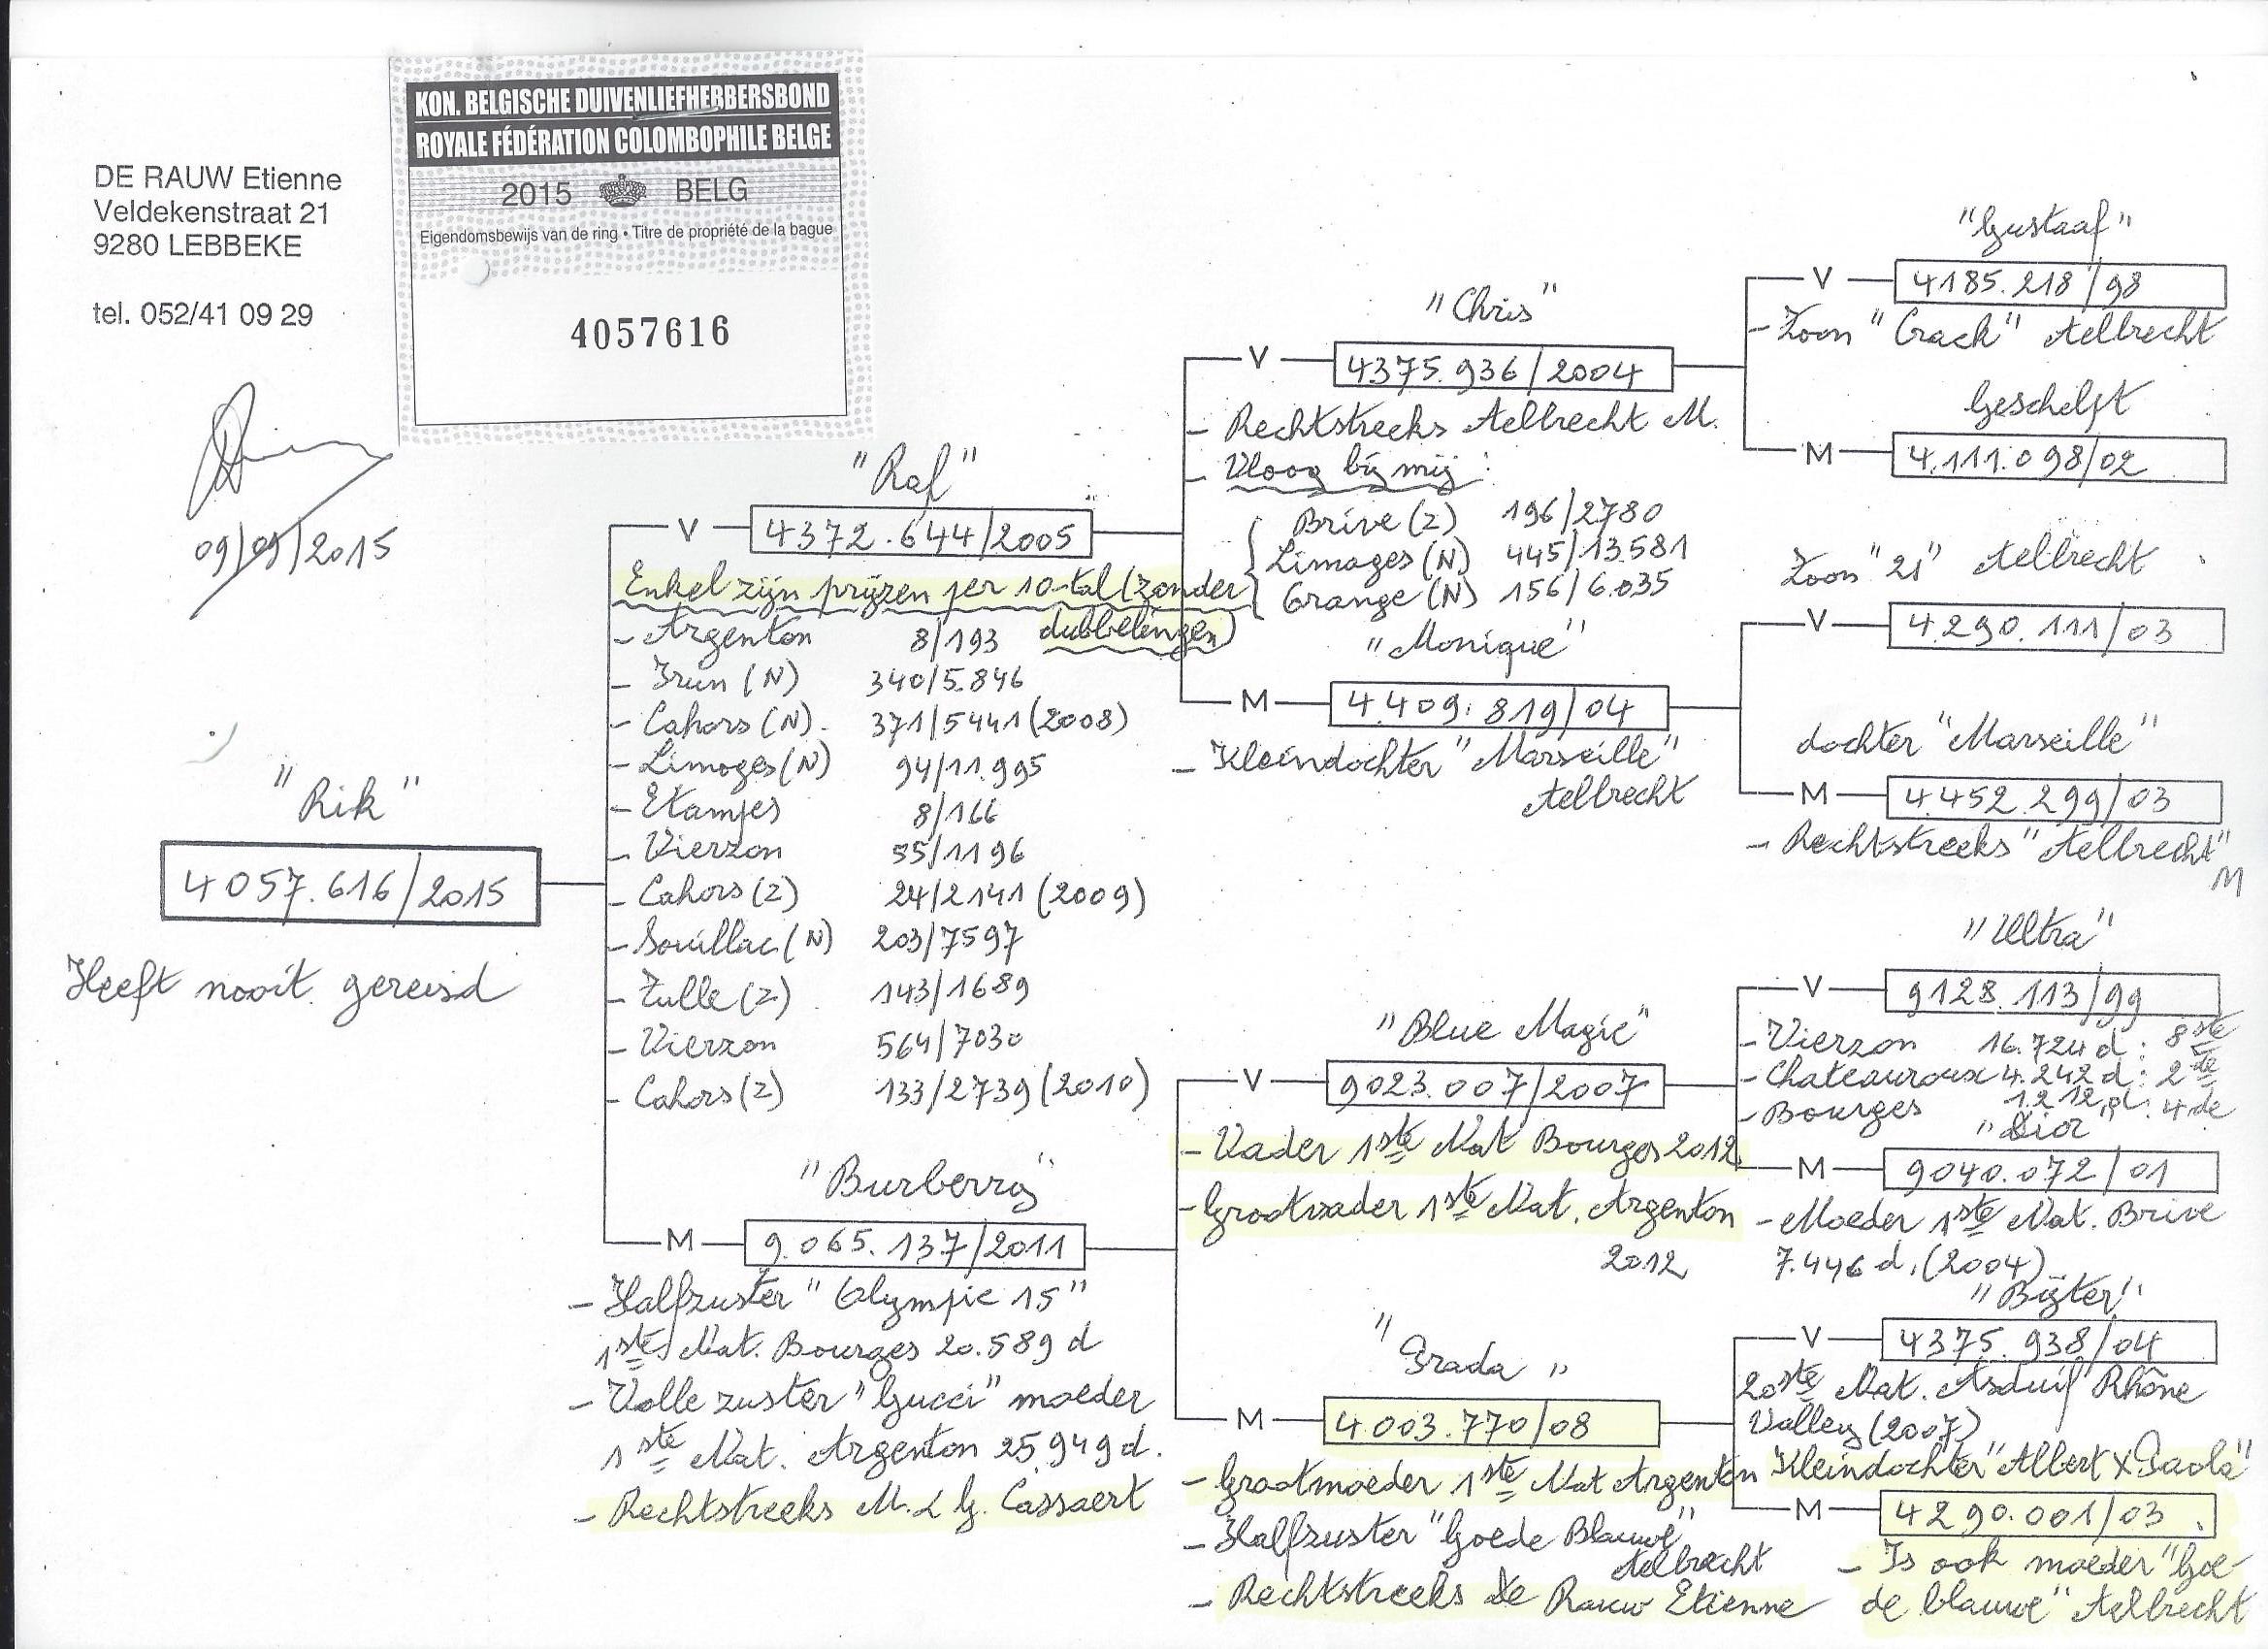 KON. BELGISCHE DUIVENLIEFHEBBERSBOND
ROYALE FÉDÉRATION COLOMBOPHILE BELGE
2015 BELG
Eigendomsbewijs van de ring • Titre de propriété de la bague
4057616
DE RAUW Etienne
Veldekenstraat 21
9280 LEBBEKE
tel. 052/41 09 29
09/09/2015
"Rik"
4057.616/2015
Heeft nooit gereisd
"Raf"
V
4372.644/2005
Enkel zijn prijzen per 10-tal (zonder
dubbelingen)
- Argenton 8/193
- Irun (N) 340/5.846
- Cahors (N). 371/5441 (2008)
- Limoges (N) 94/11.995
- Etampes 8/166
- Vierzon 55/1196
- Cahors (Z) 24/2141 (2009)
- Souillac (N) 203/7597
- Tulle (Z) 143/1689
- Vierzon 564/7030
- Cahors (Z) 133/2739 (2010)
"Burberry"
M
9.065.137/2011
- Halfzuster "Olympic 15"
1ste Nat. Bourges 20.589 d
- Volle zuster "Gucci" moeder
1ste Nat. Argenton 25.949 d.
- Rechtstreeks M. & G. Cassaert
"Chris"
V
4375.936/2004
- Rechtstreeks Aelbrecht M.
- Vloog bij mij:
Brive (Z) 196/2780
Limoges (N) 445/13.581
Orange (N) 156/6.035
"Monique"
M
4.409.819/04
- Kleindochter "Marseille"
Aelbrecht
"Blue Magic"
V
9023.007/2007
- Vader 1ste Nat Bourges 2012
- Grootvader 1ste Nat. Argenton
2012
"Prada"
M
4.003.770/08
- Grootmoeder 1ste Nat Argenton
- Halfzuster "Goede Blauwe"
Aelbrecht
- Rechtstreeks De Rauw Etienne
"Gustaaf"
V
4185.218/98
- Zoon "Crack" Aelbrecht
Geschelpt
M
4.111.098/02
Zoon "21" Aelbrecht
V
4.290.111/03
dochter "Marseille"
M
4.452.299/03
- Rechtstreeks "Aelbrecht"
M
"Ultra"
V
9128.113/99
- Vierzon 16.724 d: 8ste
- Chateauroux 4.242 d: 2de
- Bourges 1.212 d: 4de
"Dior"
M
9040.072/01
- Moeder 1ste Nat. Brive
7.446 d. (2004)
"Bijter"
V
4375.938/04
20ste Nat. Asduif Rhône
Valley (2007)
Kleindochter "Albert x Paola"
M
4290.001/03
- Is ook moeder "Goe-
de blauwe" Aelbrecht